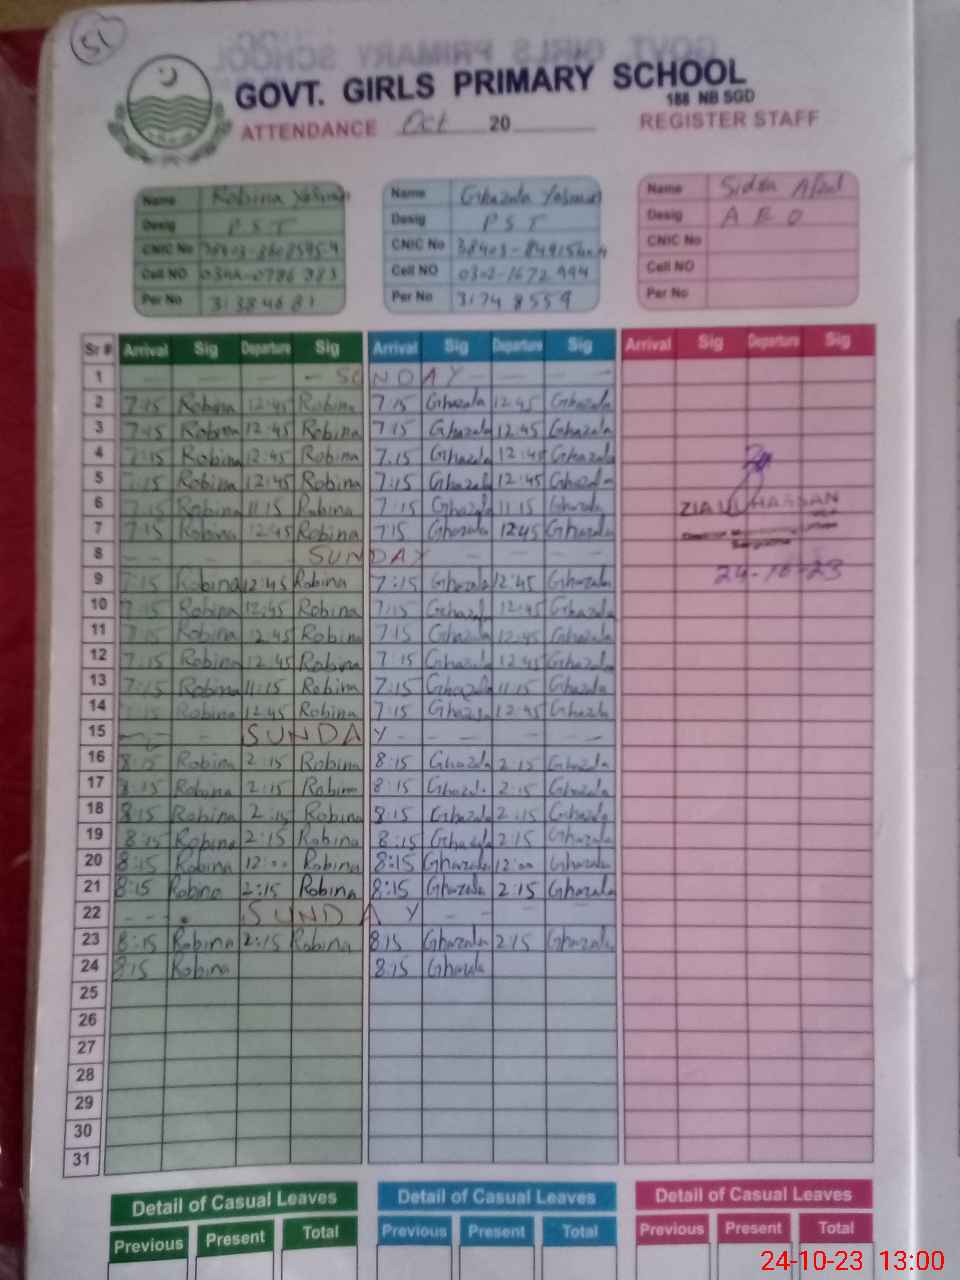 51
GOVT. GIRLS PRIMARY SCHOOL
188 NB SGD
ATTENDANCE Oct 20 REGISTER STAFF
Name Robina Yasmin Name Ghazala Yasmin Name
Desig P S T Desig P S T Desig A E O
CNIC No CNIC No CNIC No
Cell NO Cell NO 0302-1672994 Cell NO
Per No 31384681 Per No 31748559 Per No
Sr # Arrival Sig Departure Sig Arrival Sig Departure Sig Arrival Sig Departure Sig
1 - - - - SUNDAY - - - -
2 7:15 Robina 12:45 Robina 7:15 Ghazala 12:45 Ghazala
3 7:15 Robina 12:45 Robina 7:15 Ghazala 12:45 Ghazala
4 7:15 Robina 12:45 Robina 7:15 Ghazala 12:45 Ghazala
5 7:15 Robina 12:45 Robina 7:15 Ghazala 12:45 Ghazala
6 7:15 Robina 11:15 Robina 7:15 Ghazala 11:15 Ghazala
ZIA UL HASSAN
7 7:15 Robina 12:45 Robina 7:15 Ghazala 12:45 Ghazala
Sargodha
8 - - - - SUNDAY - - - -
24-10-23
9 7:15 Robina 12:45 Robina 7:15 Ghazala 12:45 Ghazala
10 7:15 Robina 12:45 Robina 7:15 Ghazala 12:45 Ghazala
11 7:15 Robina 12:45 Robina 7:15 Ghazala 12:45 Ghazala
12 7:15 Robina 12:45 Robina 7:15 Ghazala 12:45 Ghazala
13 7:15 Robina 11:15 Robina 7:15 Ghazala 11:15 Ghazala
14 7:15 Robina 12:45 Robina 7:15 Ghazala 12:45 Ghazala
15 - - SUNDAY - - - -
16 8:15 Robina 2:15 Robina 8:15 Ghazala 2:15 Ghazala
17 8:15 Robina 2:15 Robina 8:15 Ghazala 2:15 Ghazala
18 8:15 Robina 2:15 Robina 8:15 Ghazala 2:15 Ghazala
19 8:15 Robina 2:15 Robina 8:15 Ghazala 2:15 Ghazala
20 8:15 Robina 12:00 Robina 8:15 Ghazala 12:00 Ghazala
21 8:15 Robina 2:15 Robina 8:15 Ghazala 2:15 Ghazala
22 - - - SUNDAY - - - -
23 8:15 Robina 2:15 Robina 8:15 Ghazala 2:15 Ghazala
24 8:15 Robina 8:15 Ghazala
25
26
27
28
29
30
31
Detail of Casual Leaves Detail of Casual Leaves Detail of Casual Leaves
Previous Present Total Previous Present Total Previous Present Total
24-10-23 13:00